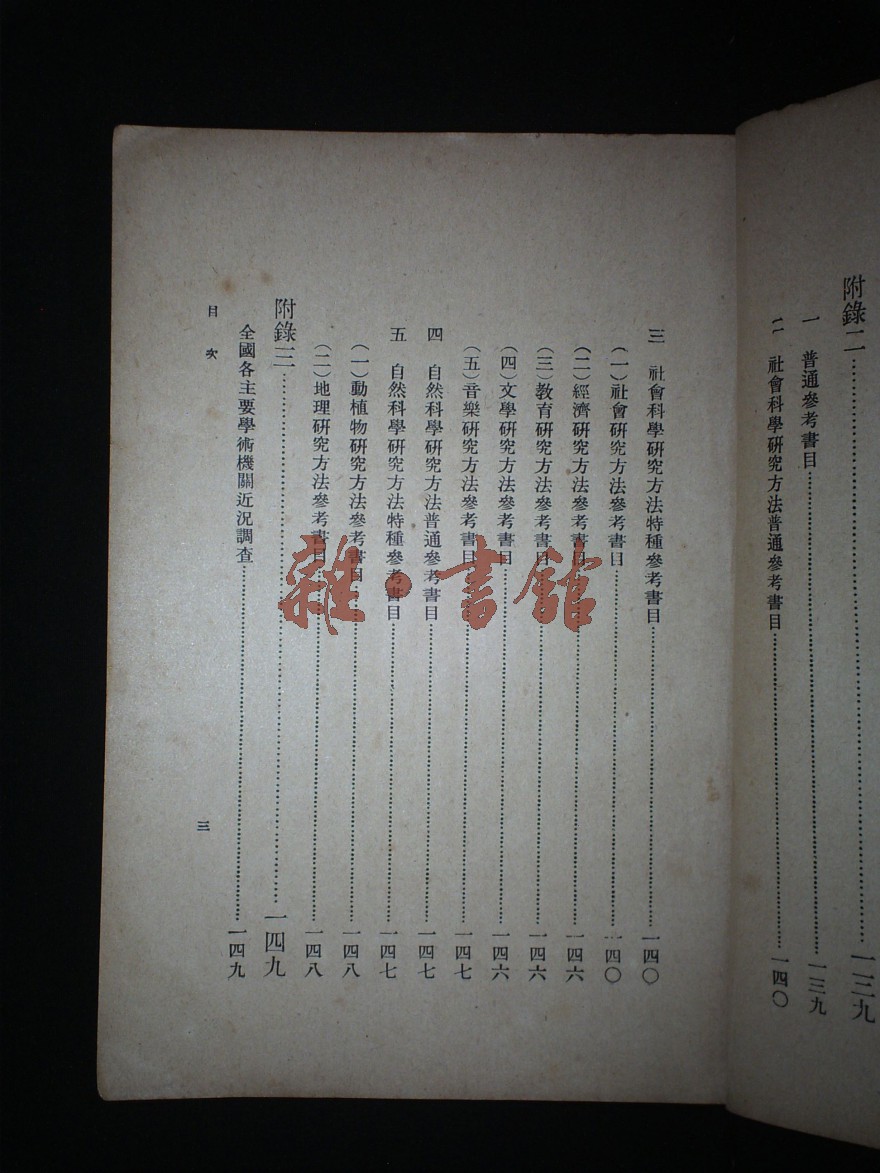 附錄二……一三九
一　普通參考書目……一三九
二　社會科學研究方法普通參考書目……一四〇
三　社會科學研究方法特種參考書目……一四〇
（一）社會研究方法參考書目……一四〇
（二）經濟研究方法參考書目……一四六
（三）教育研究方法參考書目……一四六
（四）文學研究方法參考書目……一四六
（五）音樂研究方法參考書目……一四七
四　自然科學研究方法普通參考書目……一四七
五　自然科學研究方法特種參考書目……一四七
（一）動植物研究方法參考書目……一四八
（二）地理研究方法參考書目……一四八
附錄三……一四九
全國各主要學術機關近況調查……一四九
目次
三
雜·書館